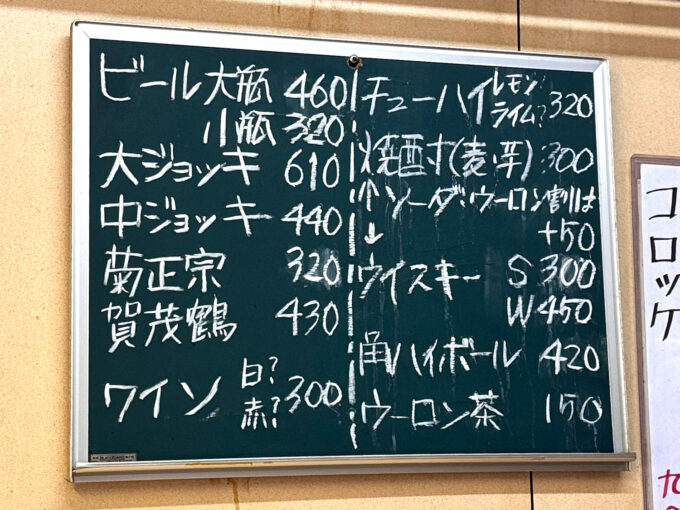 ビール大瓶 460
小瓶 320
大ジョッキ 610
中ジョッキ 440
菊正宗 320
賀茂鶴 430
ワイン 白? 赤? 300
チューハイ レモン ライム? 320
焼酎(麦・芋) 300
↑ソーダ・ウーロン割は
↓ +50
ウイスキー S 300
W 450
角ハイボール 420
ウーロン茶 150
コロッケ